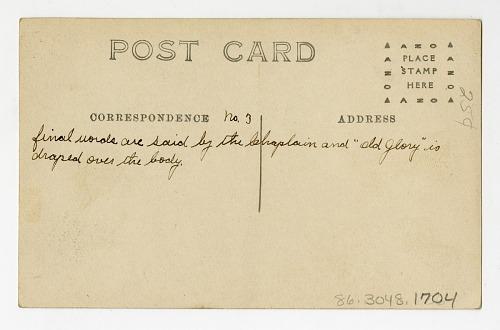 POST CARD
ANO
PLACE
STAMP
HERE
ANO
ANO
ONA
259
CORRESPONDENCE No. 3
ADDRESS
final words are said by the Chaplain and "old glory" is
draped over the body.
86.3048.1704